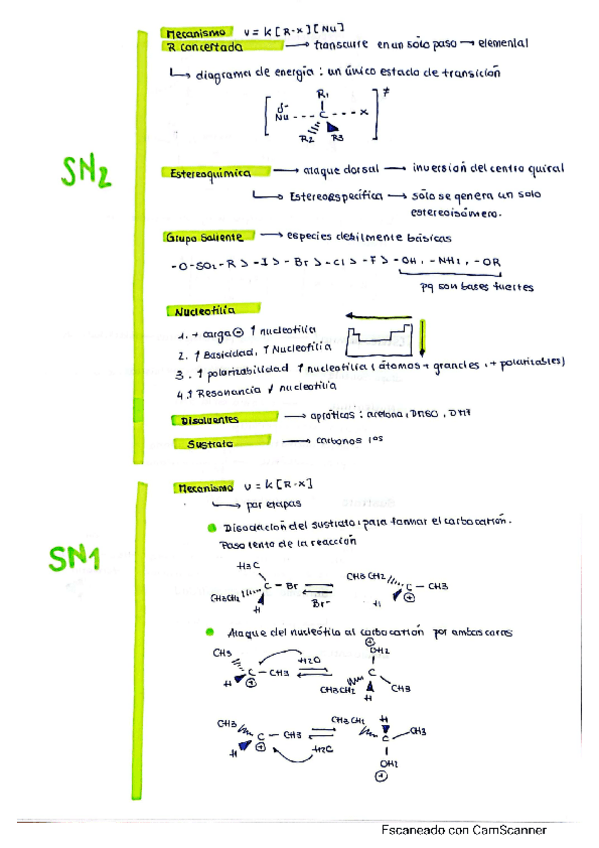 SN2
Mecanismo v = k [R-x][Nu]
R concertada → transcurre en un sólo paso → elemental
↳ diagrama de energía : un único estado de transición
R1
δ-
Nu --- C --- x ≠
R2 R3
Estereoquímica → ataque dorsal → inversión del centro quiral
↳ Estereoespecífica → sólo se genera un solo
estereoisómero.
Grupo Saliente → especies debilmente básicas
-O-SO2-R > -I > -Br > -Cl > -F > -OH, -NH2, -OR
pq son bases fuertes
Nucleofilia
1. + carga ⊖ ↑ nucleofilia
2. ↑ Basicidad, ↑ Nucleofilia
3. ↑ polarizabilidad ↑ nucleofilia (átomos + grandes, + polarizables)
4. ↑ Resonancia ↓ nucleofilia
Disolventes → apróticos: acetona, DMSO, DMF
Sustrato → carbonos 1os
SN1
Mecanismo v = k [R-x]
↳ por etapas
Disociación del sustrato para formar el carbocatión.
Paso lento de la reacción
H3C
C - Br
CH3CH2
H
Br-
CH3CH2
C - CH3
H ⊕
Ataque del nucleófilo al carbocatión por ambas caras
CH3
C - CH3
H ⊕
H2O
⊕
OH2
C
CH3CH2
H
CH3
CH3
C - CH3
H ⊕
H2O
CH3CH2
H
C
CH3
OH2
⊕
Escaneado con CamScanner